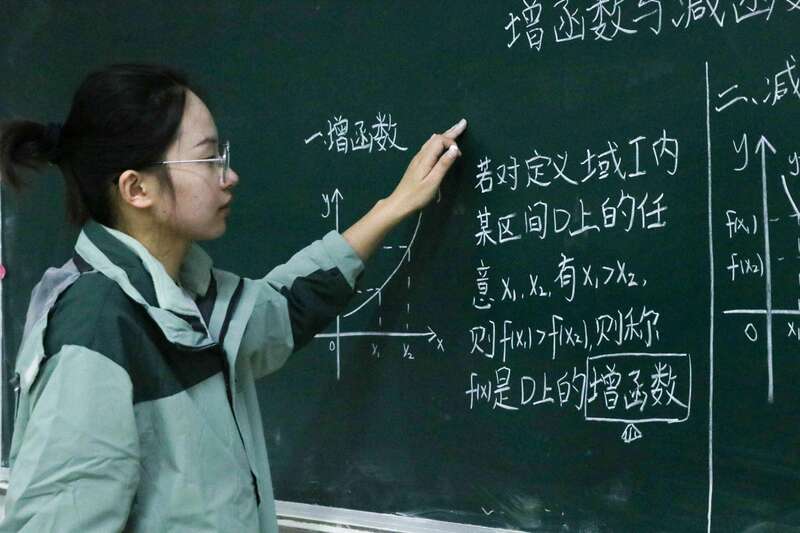 增函数与减函数
一.增函数
y
x₁
x₂
x
0
若对定义域I内
某区间D上的任
意x₁,x₂,有x₁>x₂,
则f(x₁)>f(x₂),则称
f(x)是D上的增函数
二、减
y
f(x₁)
f(x₂)
0
x₁